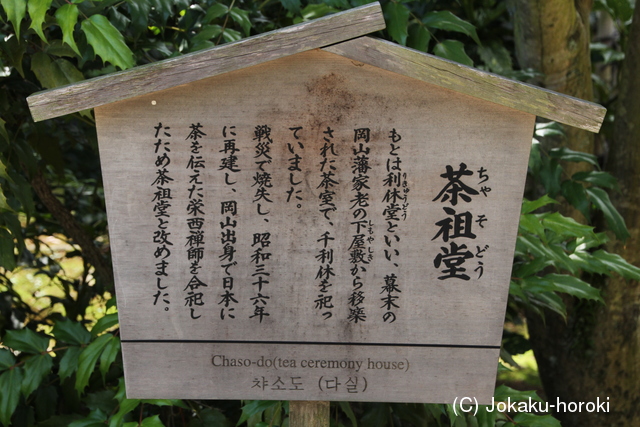 茶祖堂
ちゃそどう
もとは利休堂といい、幕末の
りきゅうどう
岡山藩家老の下屋敷から移築
しもやしき
された茶室で、千利休を祀っ
ていました。
戦災で焼失し、昭和三十六年
に再建し、岡山出身で日本に
茶を伝えた栄西禅師を合祀し
たため茶祖堂と改めました。
Chaso-do(tea ceremony house)
챠소도 (다실)
(C) Jokaku-horoki